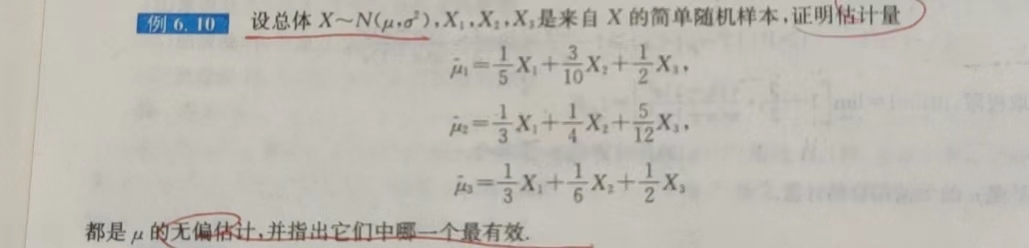 例 6.10 设总体 X~N(μ,σ²),X₁,X₂,X₃是来自 X 的简单随机样本,证明估计量
μ̂₁=1/5 X₁+3/10 X₂+1/2 X₃,
μ̂₂=1/3 X₁+1/4 X₂+5/12 X₃,
μ̂₃=1/3 X₁+1/6 X₂+1/2 X₃
都是 μ 的无偏估计,并指出它们中哪一个最有效.